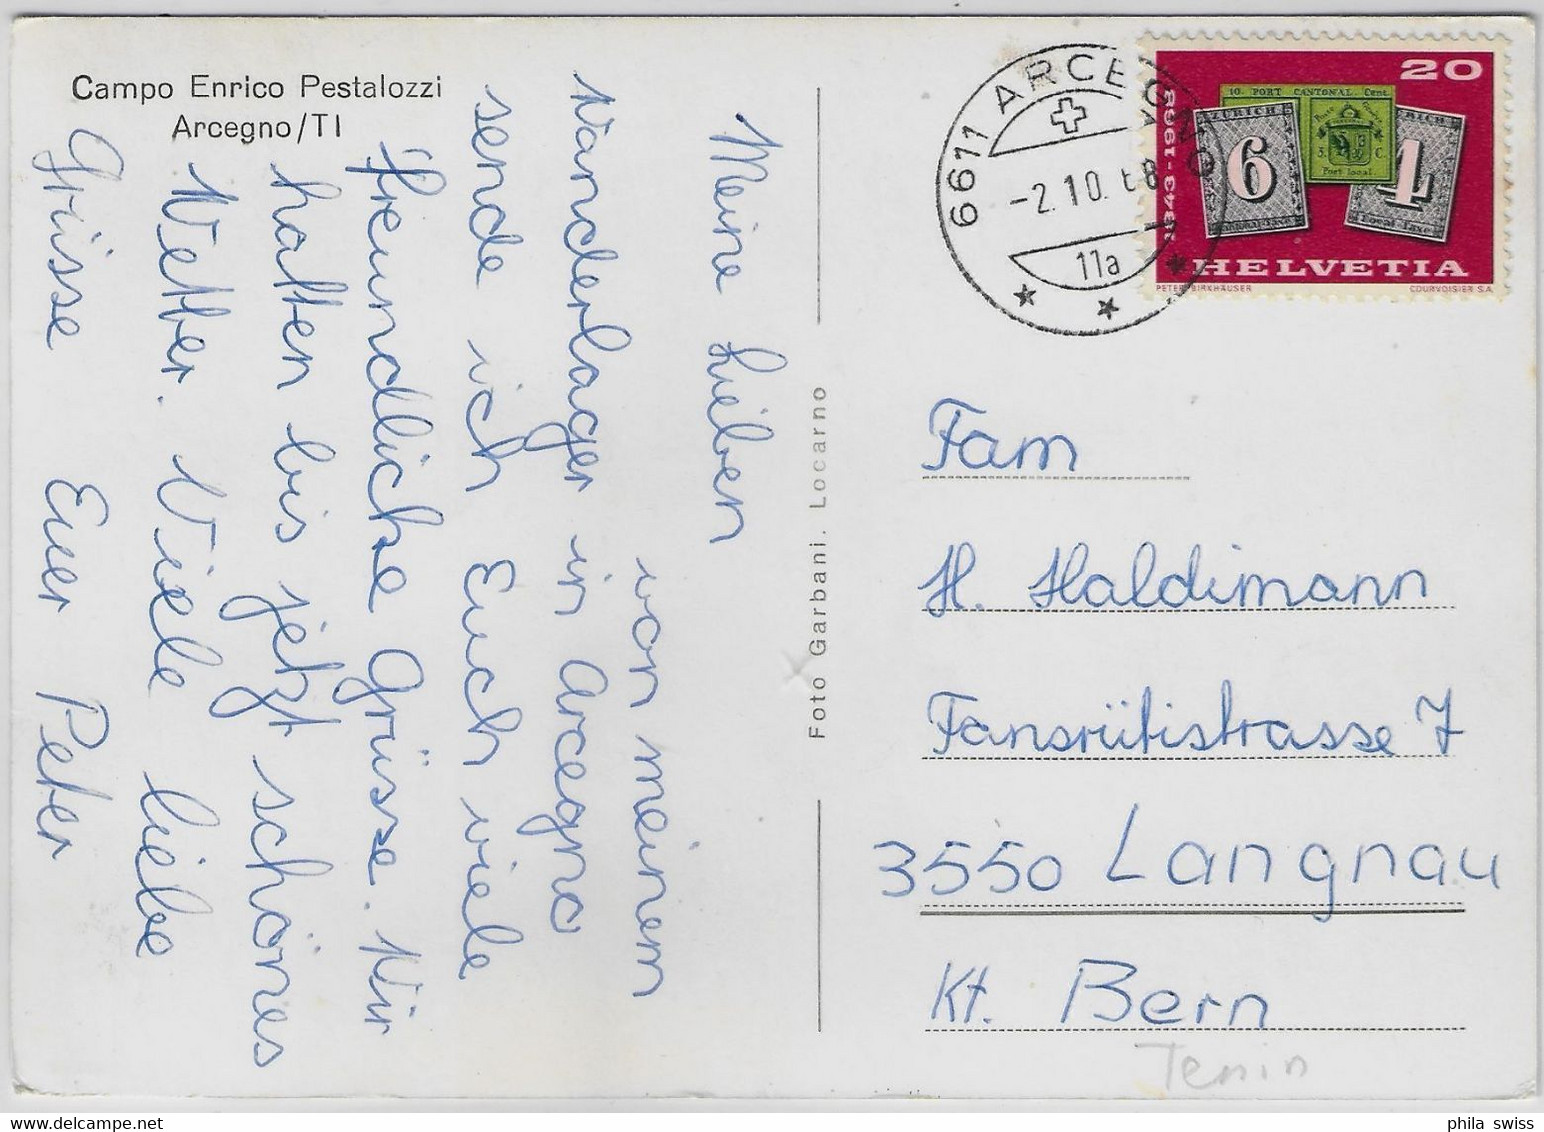 Campo Enrico Pestalozzi
Arcegno/TI
Meine Lieben
von meinem
Wanderlager in Arcegno
sende ich Euch viele
freundliche Grüsse. Wir
hatten bis jetzt schönes
Wetter. Viele liebe
Grüsse Euer Peter
Foto Garbani. Locarno
6611 ARCEGNO
-2.10.68
11a
20
1843-1968
10. PORT CANTONAL. Cent.
ZÜRICH
6
Port local
5. C.
4
Local-Taxe
HELVETIA
PETER BIRKHÄUSER
COURVOISIER S.A.
Fam
H. Haldimann
Fansrütistrasse 7
3550 Langnau
Kt. Bern
Tenin
phila swiss